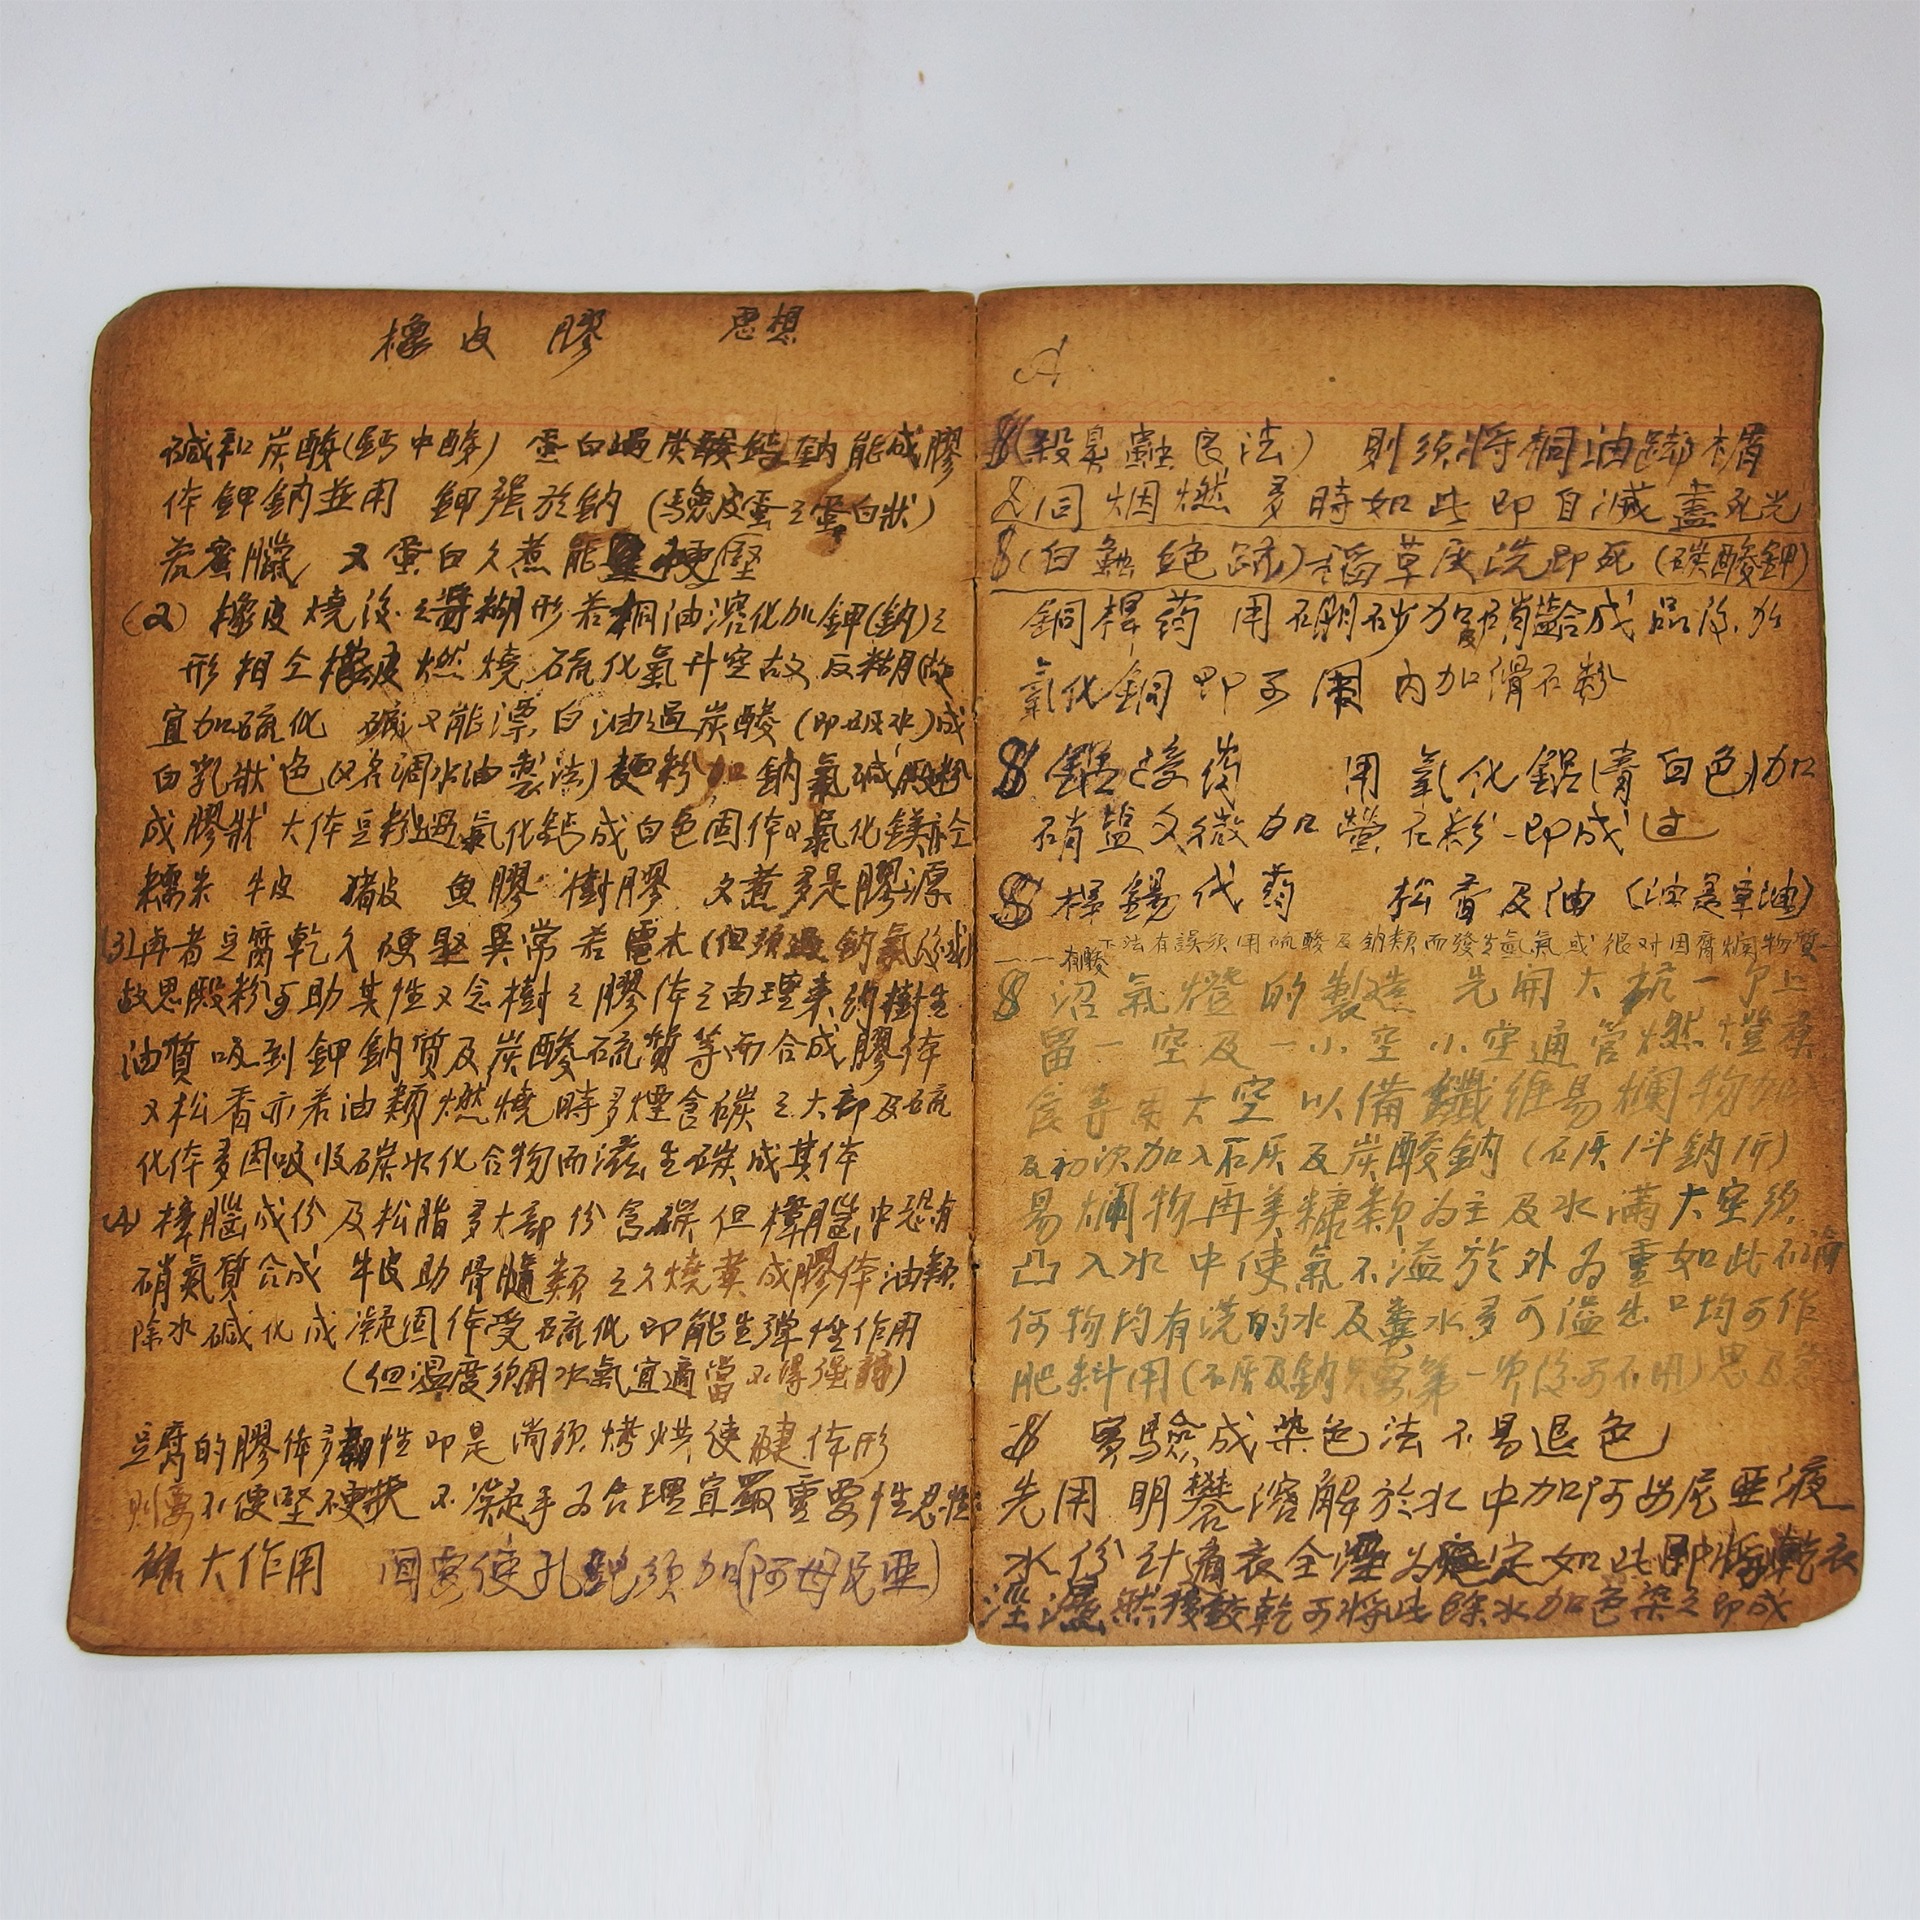 橡皮膠 思想
碱和炭酸(鈣中酸) 蛋白過炭酸鈉能成膠
体鉀鈉並用 鉀強於鈉 (皮蛋之蛋白狀)
若蜜臘 又蛋白久煮能硬堅
(2) 橡皮燒後之醬糊形若桐油溶化加鉀(鈉)之
形相仝橡皮燃燒硫化氣升空故反糊(故
宜加硫化 碱又能漂白油過炭酸(即吸水)成
白乳狀色(又名調水油製法)麵粉加鈉氣碱
成膠狀 大体豆粉過氯化鈣成白色固体又氯化鎂亦仝
糯米 牛皮 豬皮 魚膠 樹膠 久煮多是膠源
(3)再者豆腐乾久硬堅異常若電木(但須過鈉氣後成)
故思殿粉可助其性又念樹之膠体之由理樹生
油質吸到鉀鈉質及炭酸硫質等而合成膠体
又松香亦若油類燃燒時多煙含碳之大部及硫
化体多因吸收碳水化合物而滋生碳成其体
樟腦成份及松脂多大部份含碳但樟腦中恐有
硝氣質合成 牛皮助骨髓類之久燒糞成膠体油類
除水碱化成凝固体受硫化即能生彈性作用
(但溫度須用水氣宜適當不得強)
豆腐的膠体多韌性即是尚須烤烘使硬体形
則要不使堅硬狀 不凝手為合理宜最重要性
大作用 因要使孔須加(阿母尼亞)
A
(殺臭蟲良法) 則須將桐油木屑
同烟燃多時如此即自滅盡死光
(白絕跡)稻草灰洗即死(碳酸鉀)
銅桿葯 用硼砂加硝鹽合成品後加
氧化銅即可用 內加滑石粉
鋁接葯 用氧化鋁(青白色)加
硝盐又微加螢石粉即成过
桿錫代葯 松香及油(油是車油)
下法有誤須用硫酸及鈉類而發生氫氣或很对因腐爛物質
有酸
沼氣燈的製造 先開大坑一个上
留一空及一小空小空通管燃燈桌
食等用大空以備纖維易爛物加
及初次加入石灰及炭酸鈉(石灰1斗鈉1斤)
易爛物再美糠類為主及水滿大空須
凸入水中使氣不溢於外為重如此不論
何物均有洗的水及糞水多可溢出口均可作
肥料用(石灰及鈉只要第一次後可不用)思及
實驗成染色法不易退色
先用明礬溶解於水中加阿母尼亞液
水份計衣全溼為定如此即乾衣
溼濕然後較乾可將此除水加色染之即成